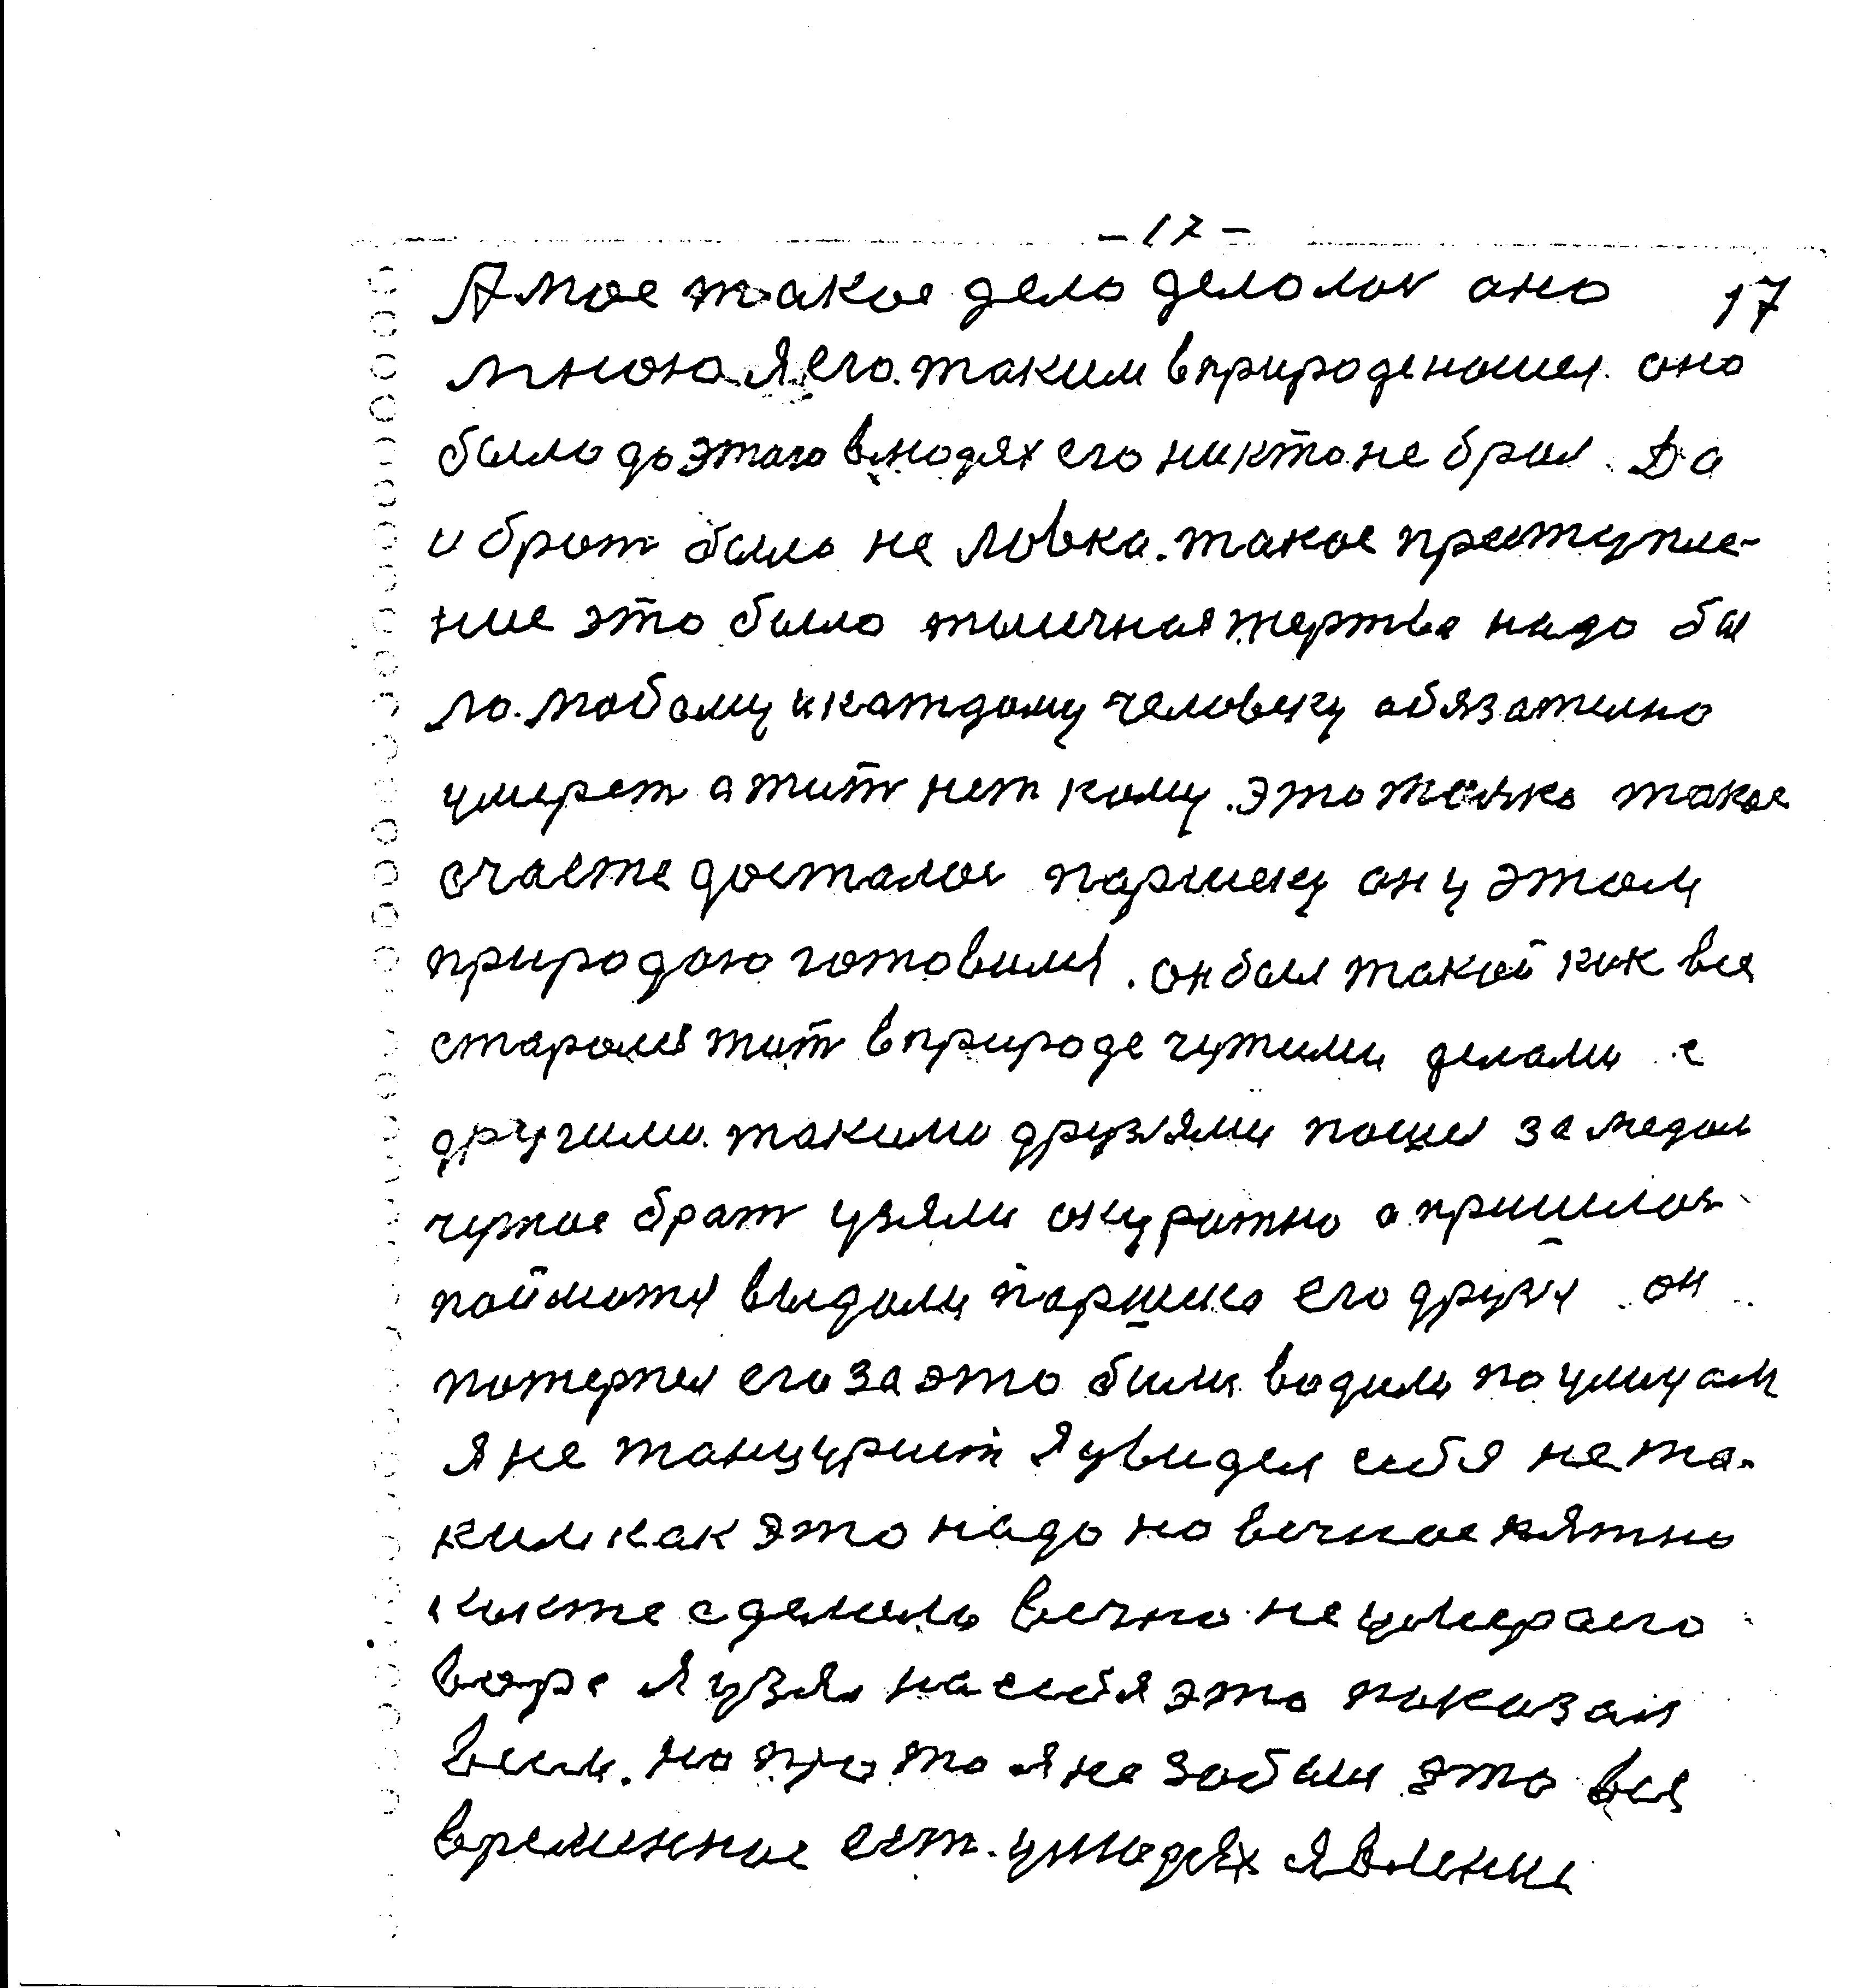 - 17 -
А мое такое дело делолос оно 17
мною я его таким в природе ношел оно
было до этого в людях его никто не брал. Да
и брат было не ловка. такое преступле-
ние это было тыпичная жертва надо бы
ло. любому и каждому человеку обязателно
умерет а жит нет кому. это толко такое
счасте досталос паршеку он у этом
природою готовился. он был такой как все
старолся жит в природе чужими делами с
другими такими друзями пошел за медом
чужое брат узяли окуратно а пришлос
пойматся выдоли паршека его друзя он
потерпел его за это били водили по улицам
я не танцурист я увидел себя не та-
ким как это надо но вечное пятно
сделали вечно не умераего
вора я узял на себя это показал
всем. но про то я не забыл это все
временное ест. у людях явление